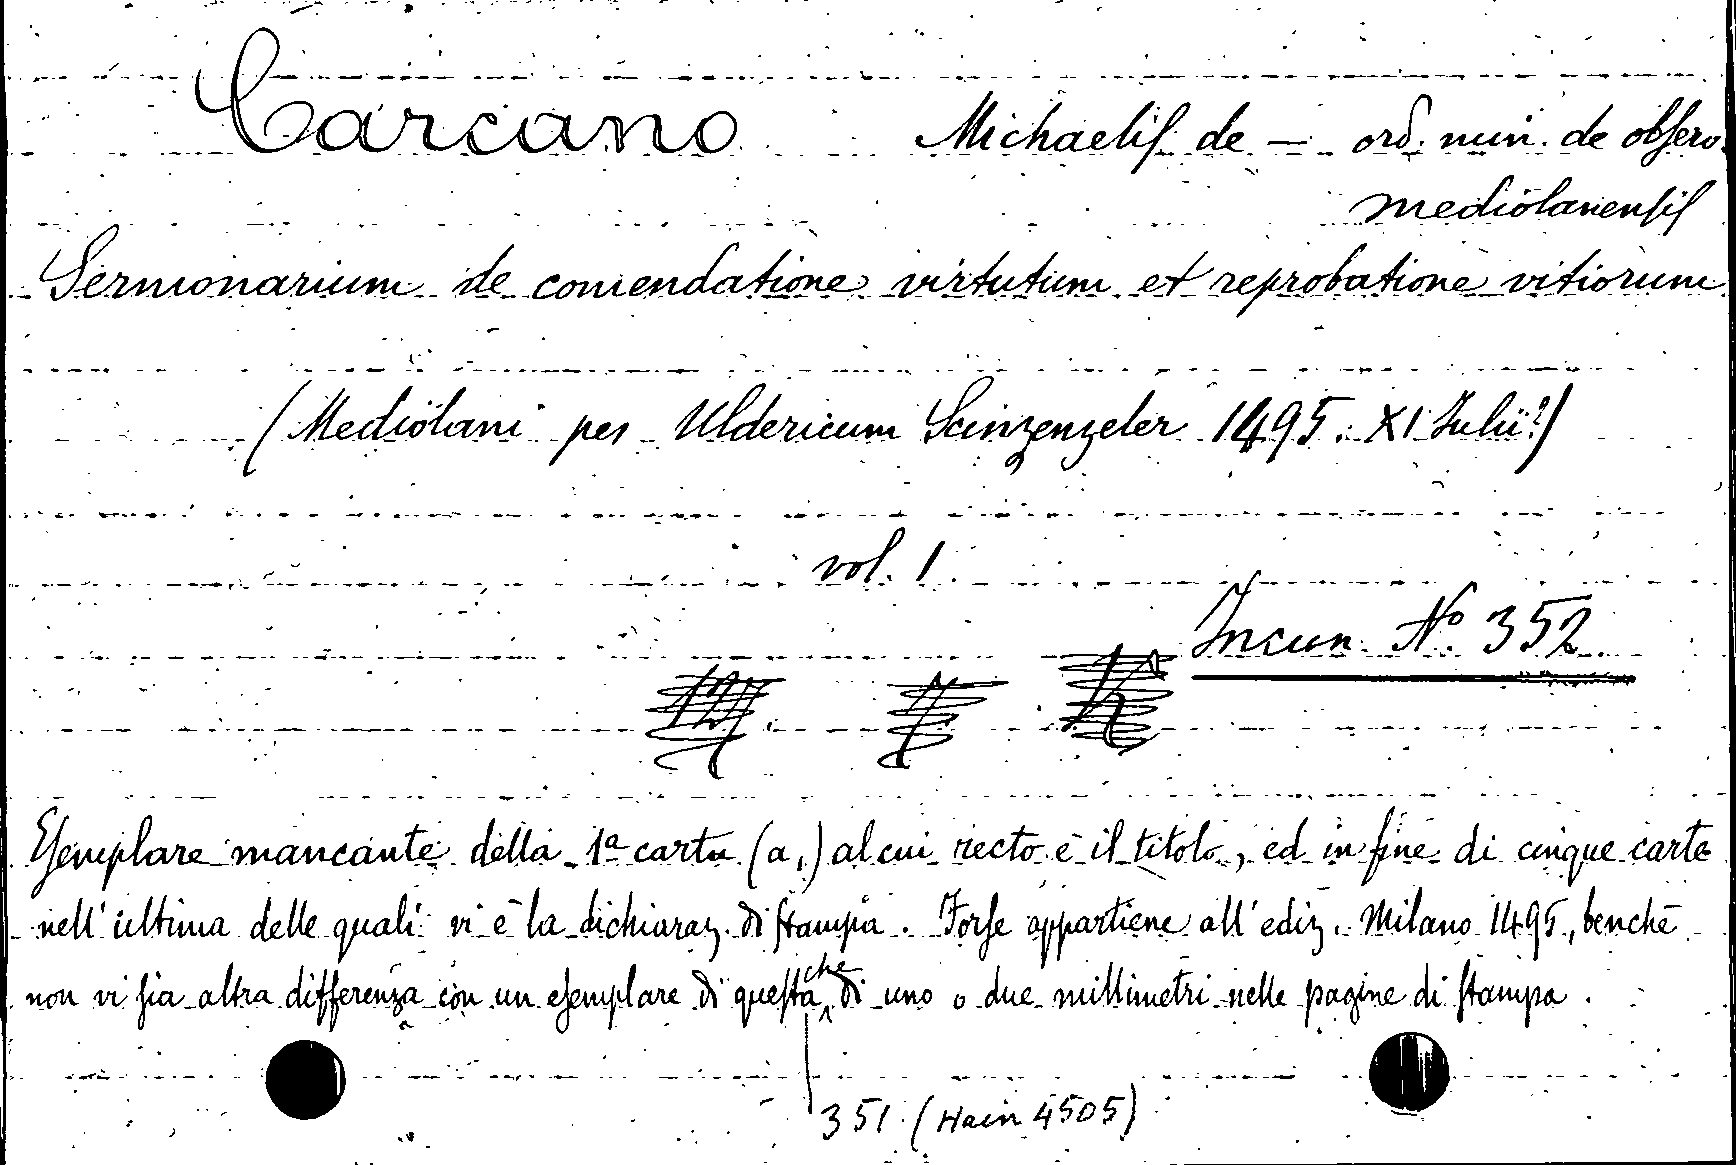 Carcano Michaelis de — ord. min. de observ.
mediolanensis
Sermonarium de comendatione virtutum et reprobatione vitiorum
(Mediolani per Uldericum Scinzenzeler 1495. XI Julii?)
vol. 1.
Incun. Nº 352.
Esemplare mancante della 1ª carta (a,) al cui recto è il titolo, ed in fine di cinque carte
nell'ultima delle quali vi è la dichiaraz. di stampa. Forse appartiene all'ediz. Milano 1495, benchè
non vi sia altra differenza con un esemplare di questa che di uno o due millimetri nelle pagine di stampa.
351 (Hain 4505)